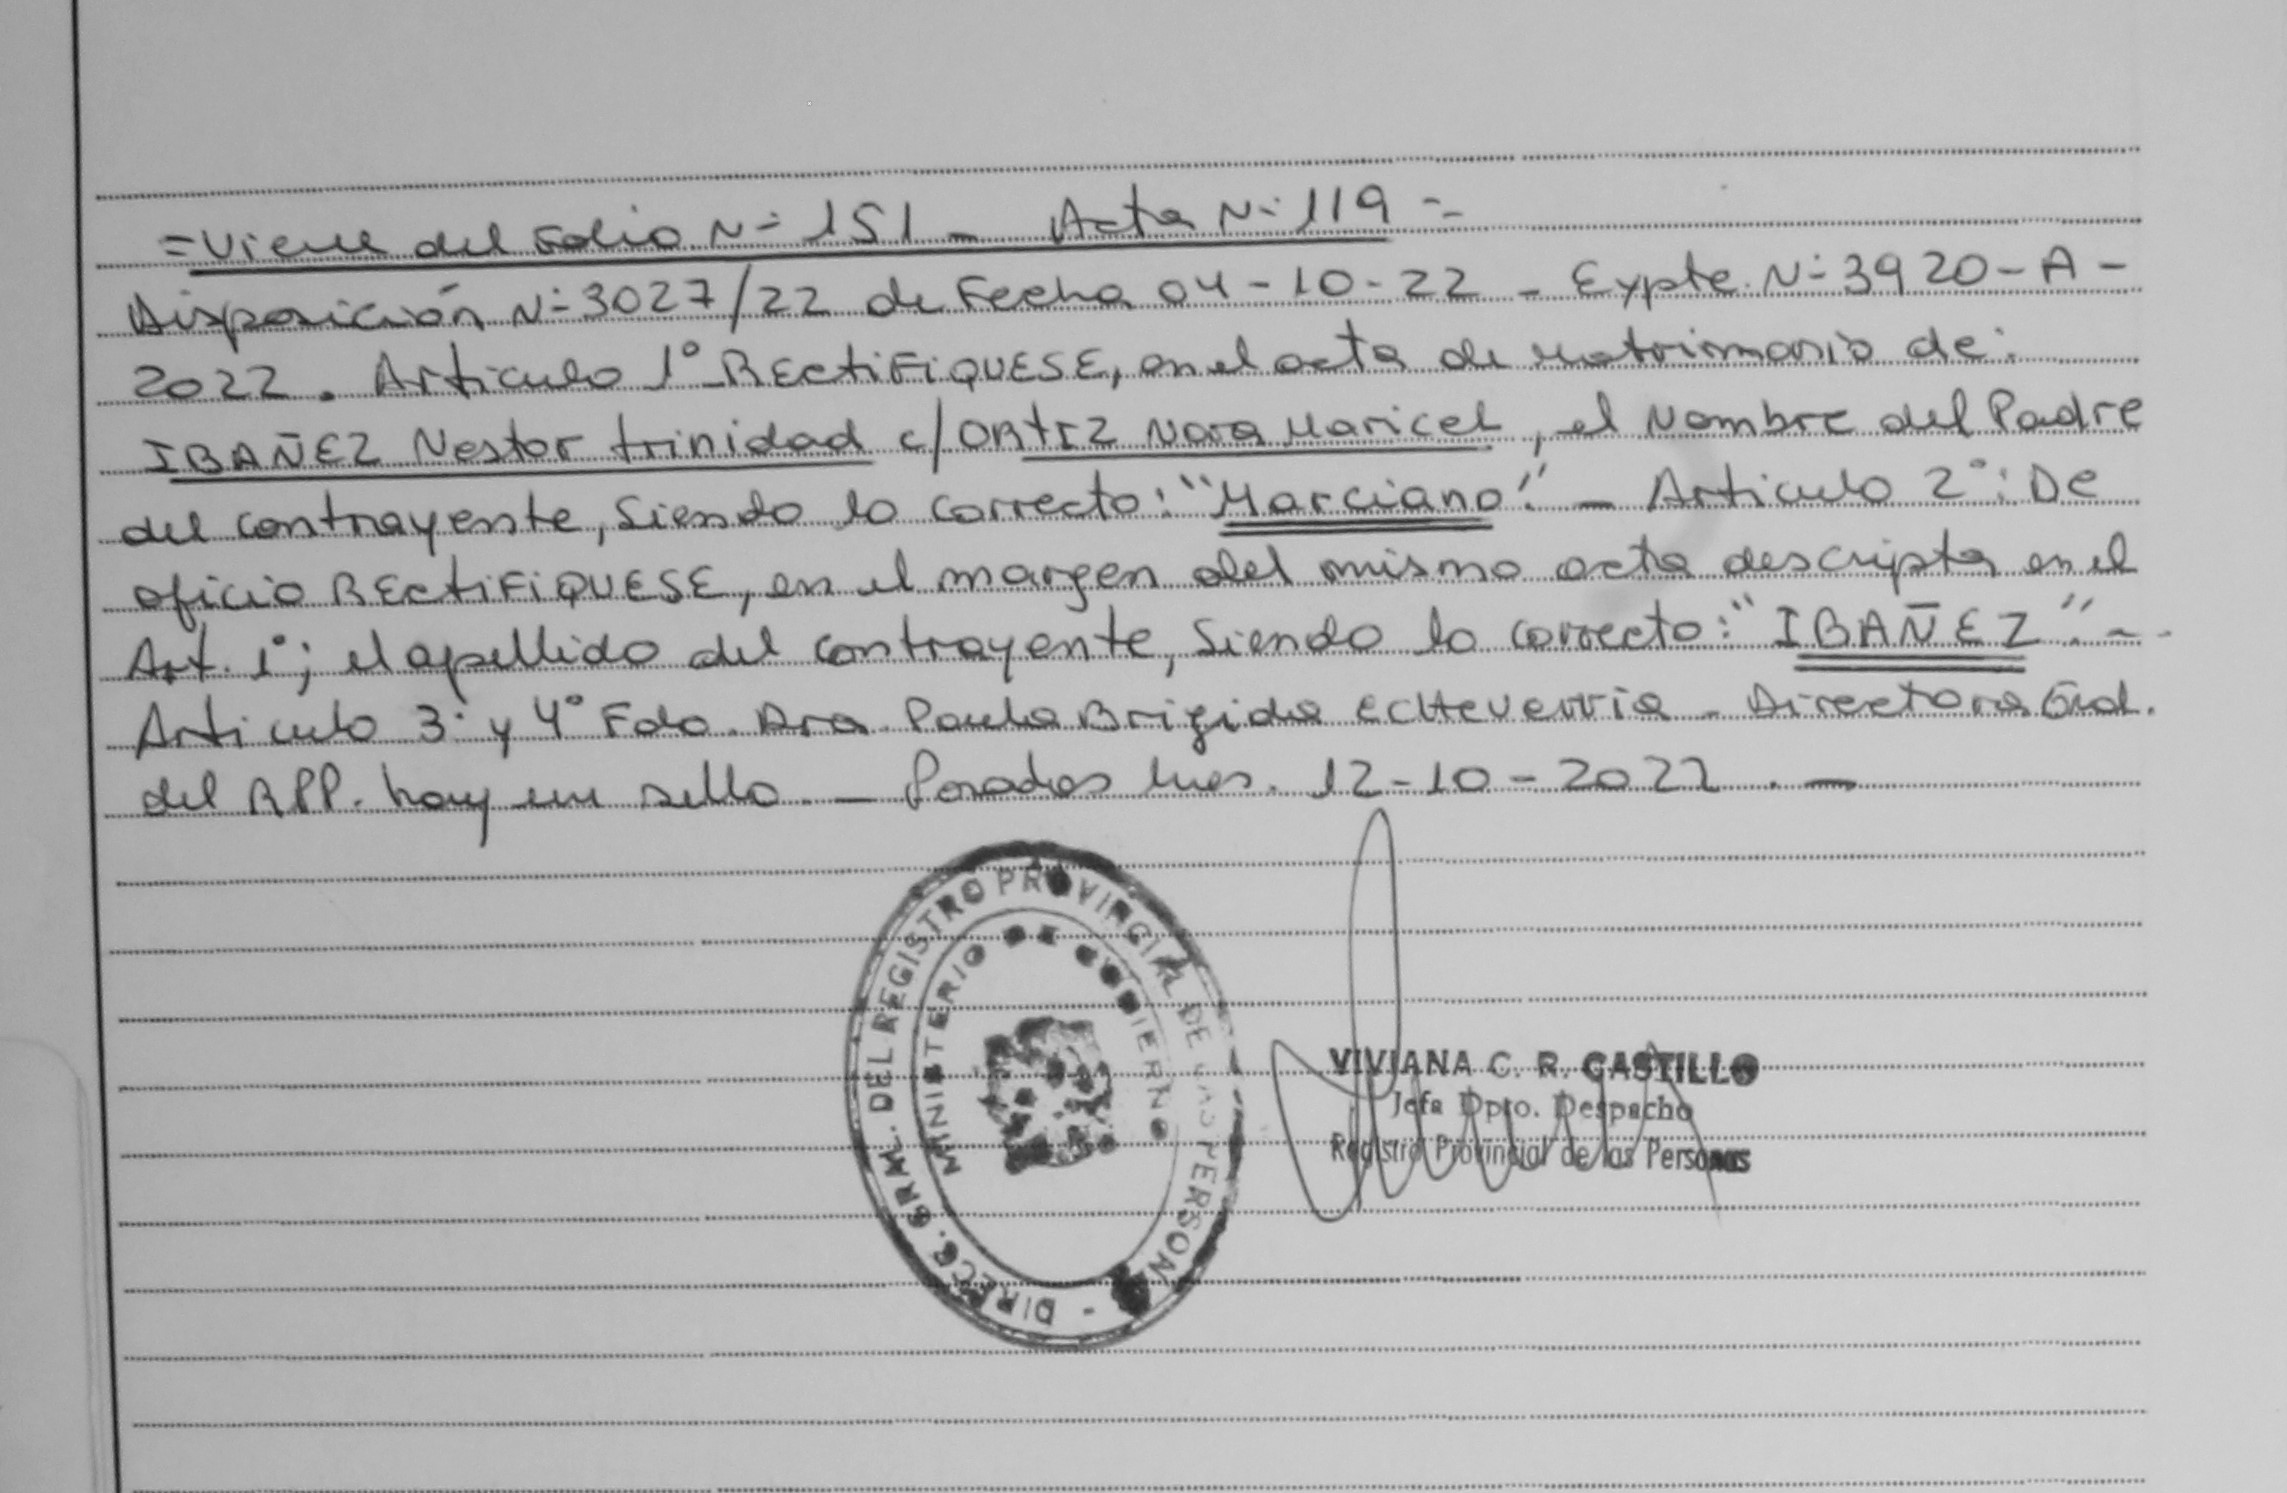 =Viene del Folio N- 151 - Acta N- 119 =
Disposición N- 3027/22 de Fecha 04-10-22 - Expte. N- 3920-A-
2022. Articulo 1° RECtiFiQUESE, en el acta de matrimonio de:
IBAÑEZ Nestor trinidad c/ORTIZ Nora Maricel, el Nombre del Padre
del contrayente, Siendo lo correcto: "Marciano". - Articulo 2°: De
oficio RECtiFiQUESE, en el margen del mismo acta descripta en el
Art. 1°; el apellido del contrayente, Siendo lo correcto: "IBAÑEZ". -
Articulo 3° y 4° Fdo. Dra. Paula Brigida ECHeverria - Directora Gral.
del RPP. hay un sello. - Posadas Mnes. 12-10-2022. -
DIRECC. GRAL. DEL REGISTRO PROVINCIAL DE LAS PERSONAS -
MINISTERIO DE GOBIERNO
VIVIANA C. R. CASTILLO
Jefa Dpto. Despacho
Registro Provincial de las Personas